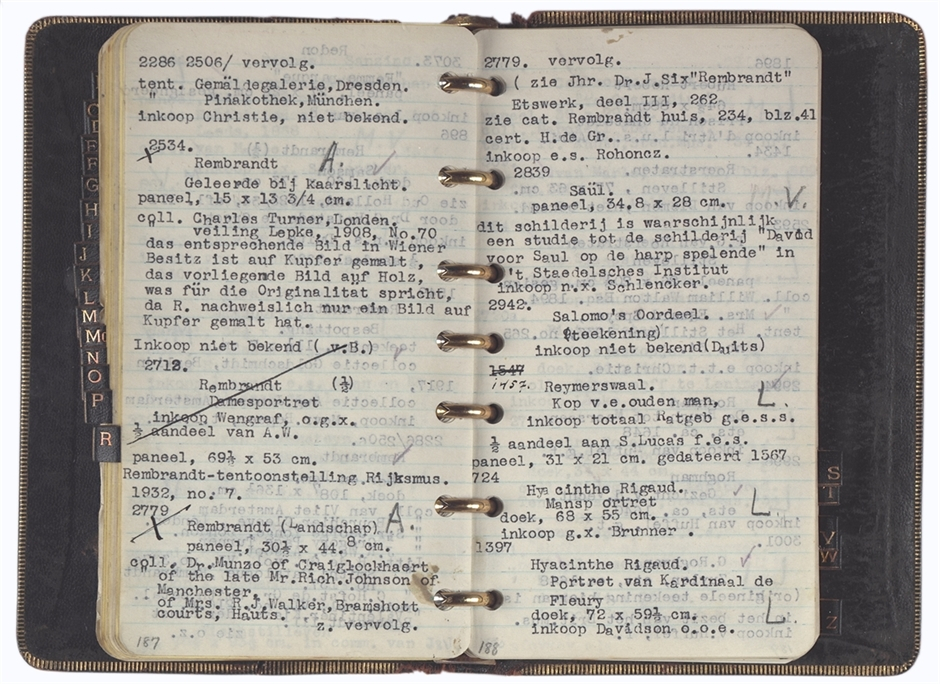 2286 2506/ vervolg.
tent. Gemäldegalerie, Dresden.
" Pinakothek, München.
inkoop Christie, niet bekend.
2534.
Rembrandt A.
Geleerde bij kaarslicht.
paneel, 15 x 13 3/4 cm.
coll. Charles Turner, Londen.
veiling Lepke, 1908, No.70
das entsprechende Bild in Wiener
Besitz ist auf Kupfer gemalt,
das vorliegende Bild auf Holz,
was für die Originalitat spricht,
da R. nachweislich nur ein Bild auf
Kupfer gemalt hat.
Inkoop niet bekend ( v.B.)
2712.
Rembrandt (½)
Damesportret
inkoop Wengraf, o.g.x.
½ aandeel van A.W.
paneel, 69½ x 53 cm.
Rembrandt-tentoonstelling Rijksmus.
1932, no. 7.
2779
Rembrandt (Landschap) A.
paneel, 30½ x 44.8 cm.
coll. Dr. Munzo of Craiglockhaert
of the late Mr. Rich. Johnson of
Manchester,
of Mrs. R.J.Walker, Bramshott
courts, Hauts.
z. vervolg.
187
2779. vervolg.
( zie Jhr. Dr.J.Six "Rembrandt"
Etswerk, deel III, 262
zie cat. Rembrandt huis, 234, blz.41
cert. H.de Gr..
inkoop e.s. Rohoncz.
2839
Saül.
paneel, 34,8 x 28 cm. V.
dit schilderij is waarschijnlijk
een studie tot de schilderij "David
voor Saul op de harp spelende" in
't Staedelsches Institut
inkoop n.x. Schlencker.
2942.
Salomo's Oordeel.
(teekening)
inkoop niet bekend (Duits)
1547
1457.
Reymerswaal.
Kop v.e.ouden man, L.
inkoop totaal Ratgeb g.e.s.s.
½ aandeel aan S.Lucas f.e.s.
paneel, 31 x 21 cm. gedateerd 1567
724
Hyacinthe Rigaud.
Mansportret L
doek, 68 x 55 cm.
inkoop g.x. Brunner .
1397
Hyacinthe Rigaud.
Portret van Kardinaal de
Fleury
doek, 72 x 59½ cm. L
inkoop Davidson o.o.e.
188
C
D
E
F
G
H
I
J
K
L
M
M
N
O
P
R
S
T
V
W
Z